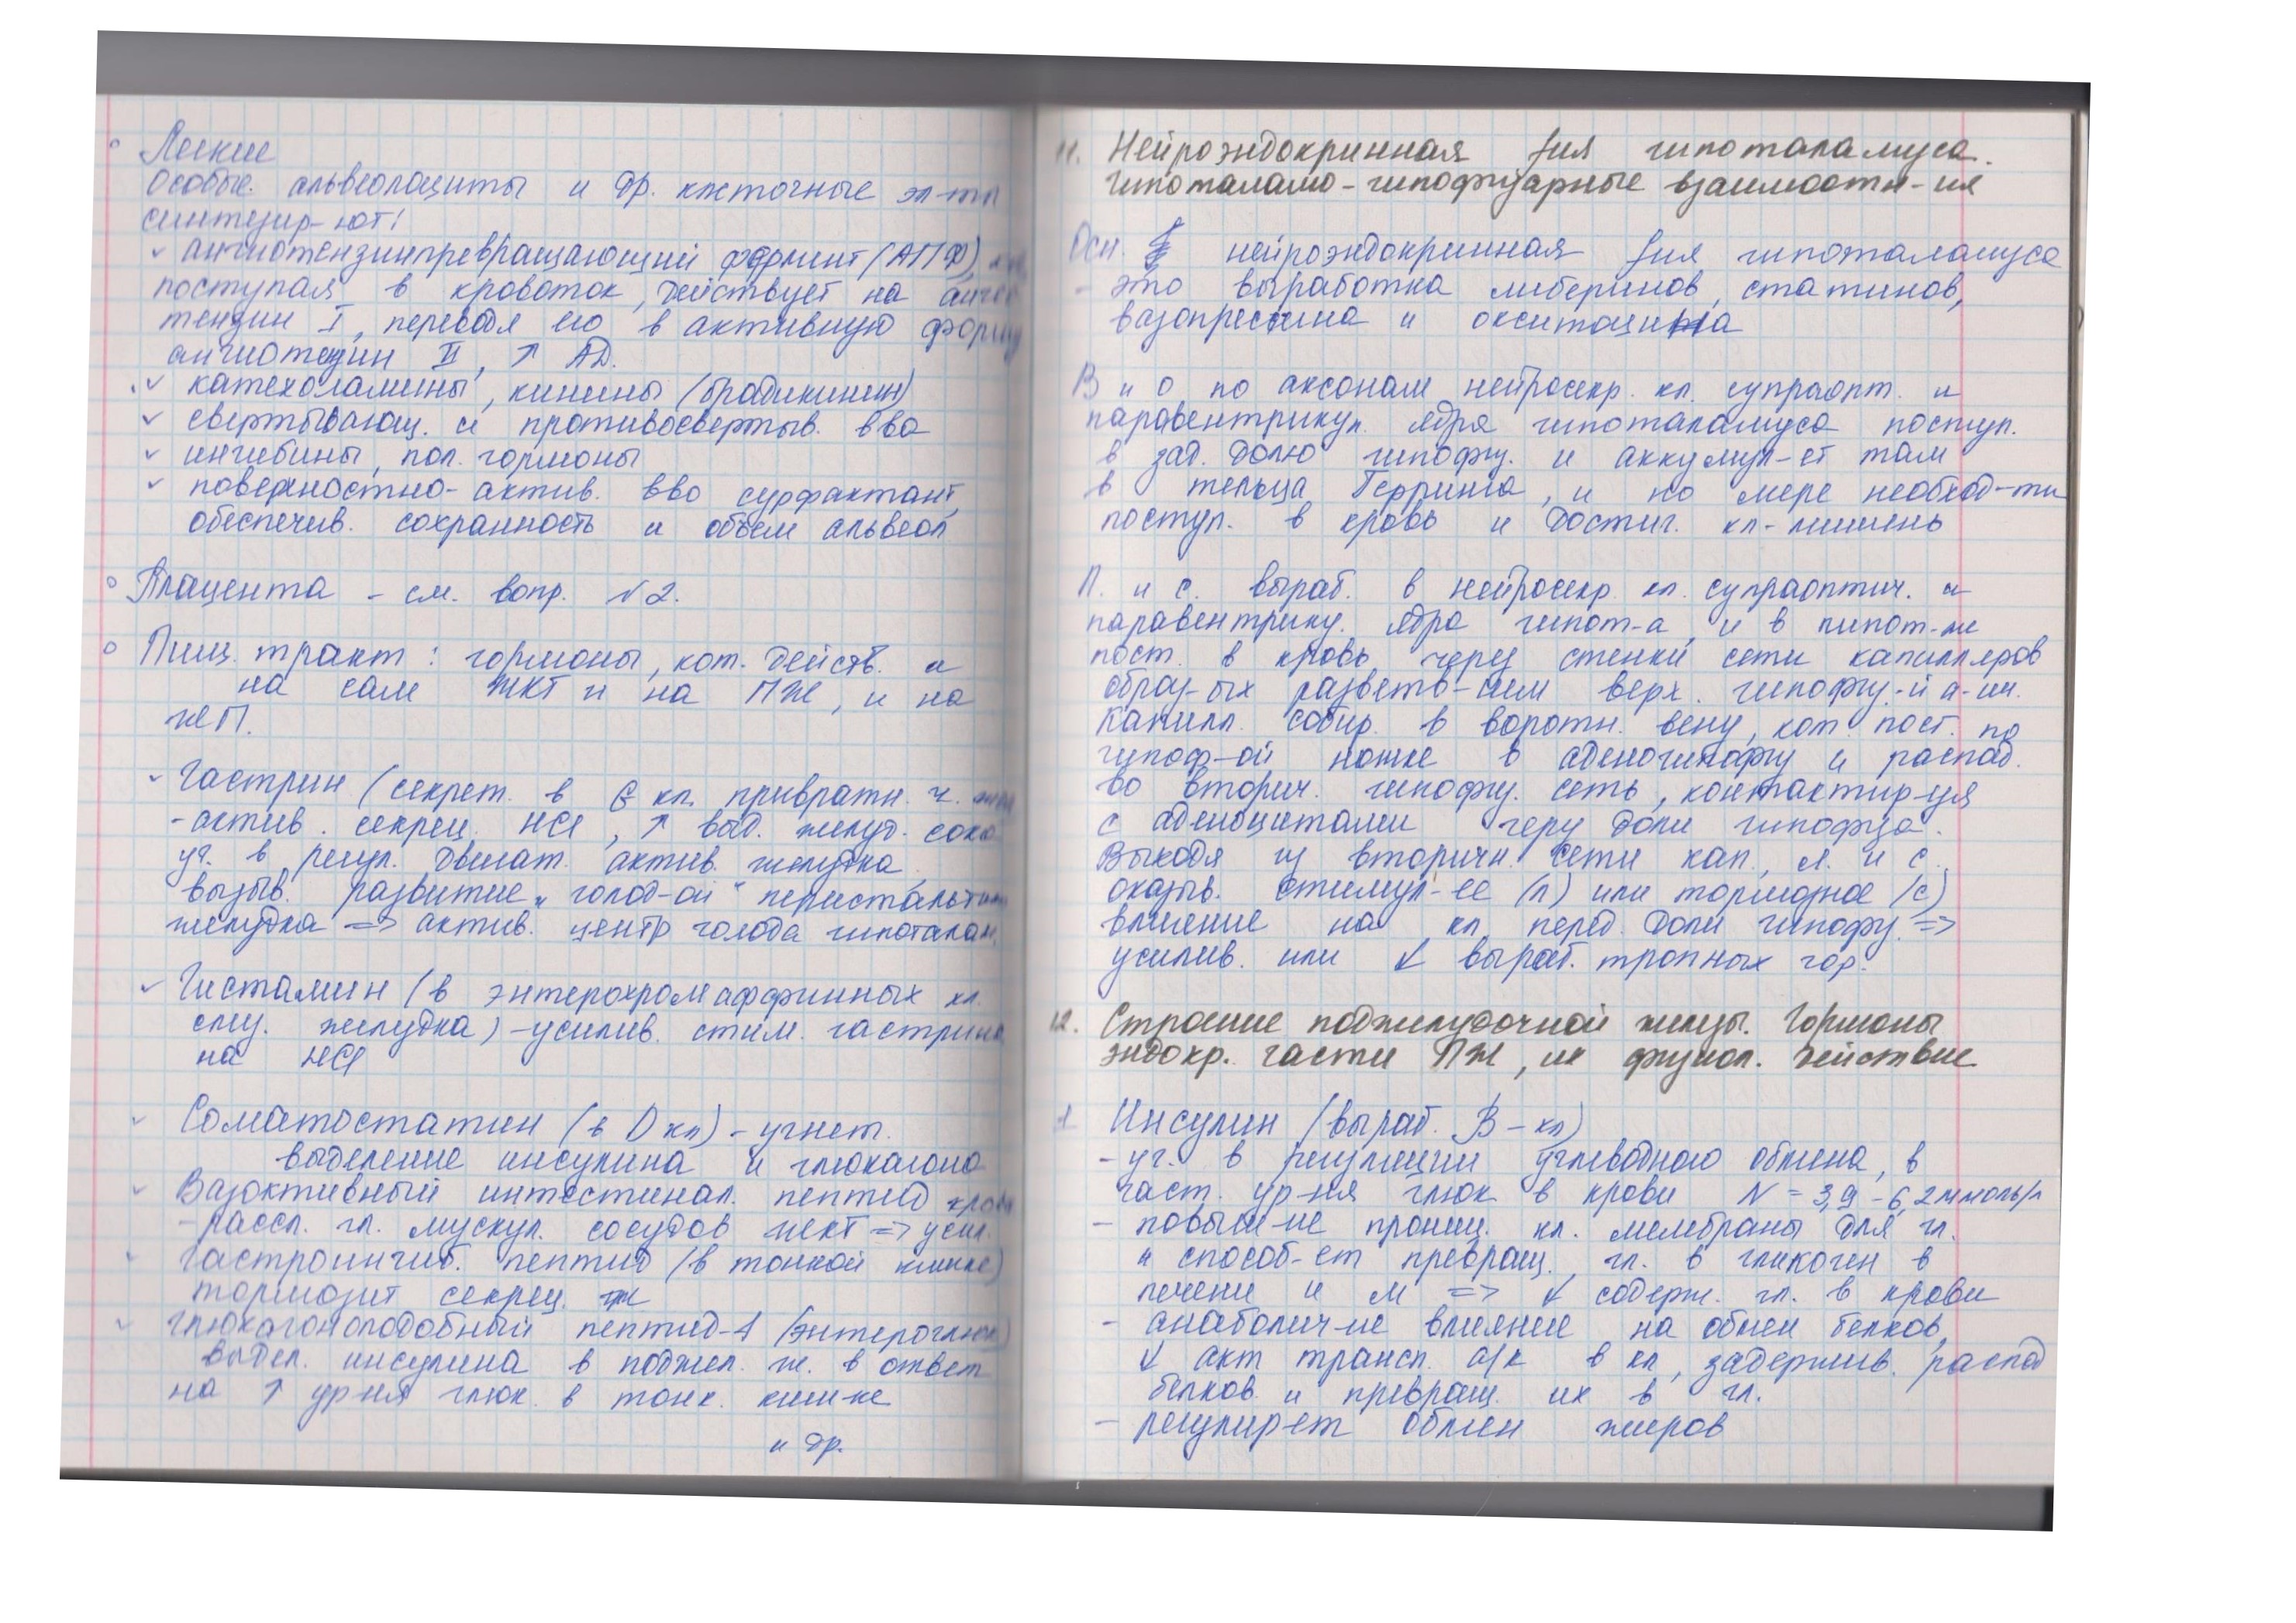 Легкие
Особые альвеолоциты и др. клеточные эл-ты
синтезир-ют:
ангиотензинпревращающий фермент (АПФ),
поступая в кровоток, действует на ангио
тензин I, переводя его в активную форму
ангиотензин II, ↑ АД.
катехоламины, кинины (брадикинин)
свертывающ. и противосвертыв. вва
ингибины, пол. гормоны
поверхностно-актив. вво сурфактант,
обеспечив. сохранность и объем альвеол
Плацента - см. вопр. №2.
Пищ. тракт: гормоны, кот. действ. и
на сам ЖКТ и на ПЖ, и на
ЖП.
Гастрин (секрет. в G кл. привратн. ч.
- актив. секрец. HCl, ↑ выд. желуд. сока
уч. в регул. двигат. актив. желудка,
вызыв. развитие "голод-ой" перистальтики
желудка => актив. центр голода гипоталам.
Гистамин (в энтерохромаффинных кл.
слиз. желудка) - усилив. стим. гастрина
на HCl
Соматостатин (в D кл) - угнет.
выделение инсулина и глюкагона
Вазоктивный интестинал. пептид
- рассл. гл. мускул. сосудов ЖКТ => усил. кров
Гастроингиб. пептид (в тонкой кишке)
тормозит секрец. ж
Глюкагоноподобный пептид-1 (энтероглюк)
выдел. инсулина в поджел. ж. в ответ
на ↑ ур-ня глюк. в тонк. киш-ке
и др.
11. Нейроэндокринная fия гипоталамуса.
Гипоталамо-гипофизарные взаимоотн-ия
Осн. нейроэндокринная fия гипоталамуса
- это выработка либеринов, статинов,
вазопрессина и окситоцина
В и О по аксонам нейросекр. кл. супраопт. и
паравентрикул. ядра гипоталамуса поступ.
в зад. долю гипофиз. и аккумул-ет там
в тельца Герринга, и по мере необход-ти
поступ. в кровь и достиг. кл-мишень
Л. и С. выраб. в нейросекр. кл. супраоптич. и
паравентрику. ядра гипот-а, и в гипот-ме
пост. в кровь через стенки сети капилляров
образ-ых разветв-ием верх. гипофиз-й а-ии.
Капилл. собир. в воротн. вену, кот. пост. по
гипоф-ой ножке в аденогипофиз и распад.
во вторич. гипофиз. сеть, контактир-уя
с аденоцитами долей гипофиза.
Выходя из вторичн. сети кап., Л. и С.
оказыв. стимул-ее (Л) или тормозное (С)
влияние на кл. перед. доли гипофиз. =>
усилив. или ↓ выраб. тропных гор.
12. Строение поджелудочной железы. Гормоны
эндокр. части ПЖ, их физиол. действие
1. Инсулин (выраб. B - кл)
- уч. в регуляции углеводного обмена, в
част. ур-ня глюк. в крови N = 3,9 - 6,2 ммоль/л
- повыш-ие прониц. кл. мембраны для гл.
и способ-ет превращ. гл. в гликоген в
печени и м => ↓ содерж. гл. в крови
- анаболич-ие влияние на обмен белков,
↓ акт трансп. а/к в кл, задержив. распад
белков и превращ. их в гл.
- регулир-ет обмен жиров